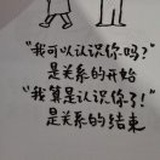 “我可以认识你吗？”
是关系的开始
“我算是认识你了！”
是关系的结束